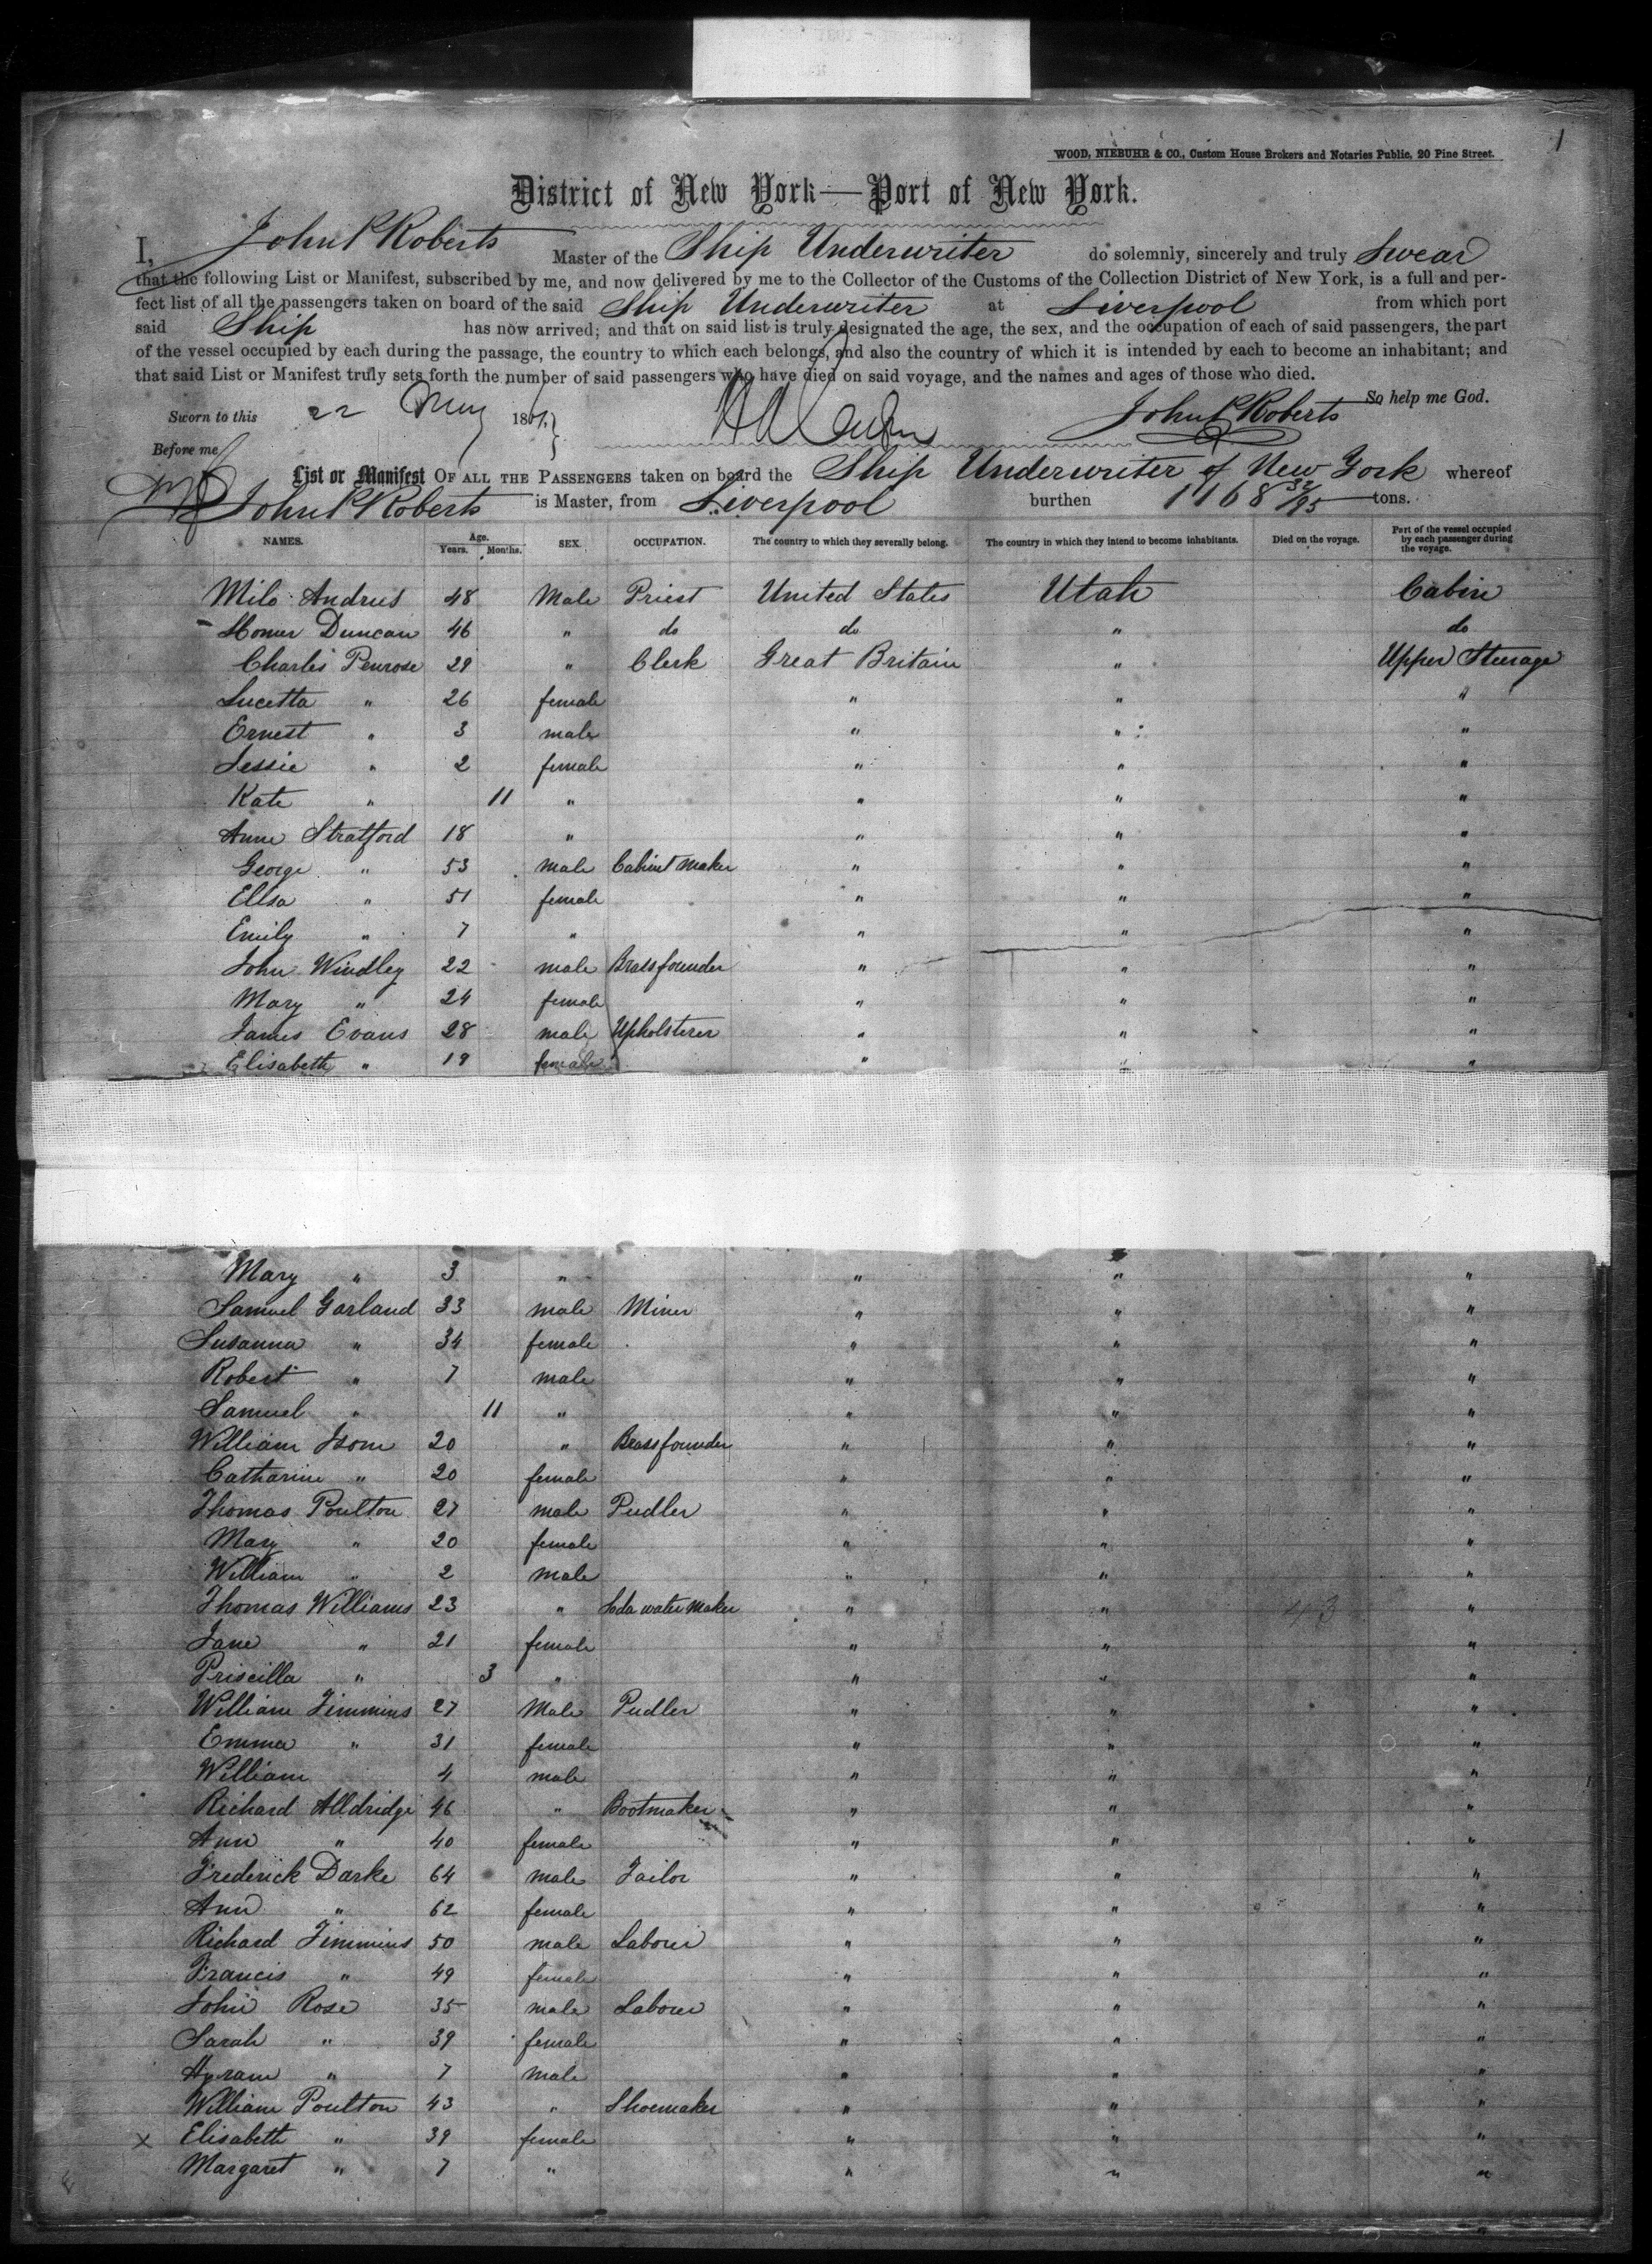 1
WOOD, NIEBUHR & CO., Custom House Brokers and Notaries Public, 20 Pine Street.
District of New York—Port of New York.
I, John P Roberts Master of the Ship Underwriter do solemnly, sincerely and truly Swear
that the following List or Manifest, subscribed by me, and now delivered by me to the Collector of the Customs of the Collection District of New York, is a full and per-
fect list of all the passengers taken on board of the said Ship Underwriter at Liverpool from which port
said Ship has now arrived; and that on said list is truly designated the age, the sex, and the occupation of each of said passengers, the part
of the vessel occupied by each during the passage, the country to which each belongs, and also the country of which it is intended by each to become an inhabitant; and
that said List or Manifest truly sets forth the number of said passengers who have died on said voyage, and the names and ages of those who died.
So help me God.
Sworn to this 22 May 1861 John P Roberts
Before me
List or Manifest OF ALL THE PASSENGERS taken on board the Ship Underwriter of New York whereof
John P Roberts is Master, from Liverpool burthen 1168 32/95 tons.
NAMES. Age. Years. Months. SEX. OCCUPATION. The country to which they severally belong. The country in which they intend to become inhabitants. Died on the voyage. Part of the vessel occupied by each passenger during the voyage.
Milo Andrus 48 Male Priest United States Utah Cabin
Homer Duncan 46 " do do " do
Charles Penrose 29 " Clerk Great Britain " Upper Steerage
Lucetta " 26 female " " "
Ernest " 3 male " " "
Jessie " 2 female " " "
Kate " 11 " " " "
Anne Stratford 18 " " " "
George " 53 male Cabinet Maker " " "
Elisa " 51 female " " "
Emily " 7 " " " "
John Windley 22 male Brassfounder " " "
Mary " 24 female " " "
James Evans 28 male Upholsterer " " "
Elisabeth " 19 female " " "
Mary " 3 " " " "
Samuel Garland 33 male Miner " " "
Susanna " 34 female " " "
Robert " 7 male " " "
Samuel " 11 " " " "
William Isom 20 " Brassfounder " " "
Catharine " 20 female " " "
Thomas Poulton 27 male Pudler " " "
Mary " 20 female " " "
William " 2 male " " "
Thomas Williams 23 " Soda water Maker " " 43 "
Jane " 21 female " " "
Priscilla " 3 " " " "
William Timmins 27 Male Pudler " " "
Emma " 31 female " " "
William 4 male " " "
Richard Alldridge 46 " Bootmaker " " "
Ann " 40 female " " "
Frederick Darke 64 male Tailor " " "
Ann " 62 female " " "
Richard Timmins 50 male Laborer " " "
Francis " 49 female " " "
John Rose 35 male Laborer " " "
Sarah " 39 female " " "
Hyram " 7 male " " "
William Poulton 43 " Shoemaker " " "
x Elisabeth " 39 female " " "
Margaret " 7 " " " "